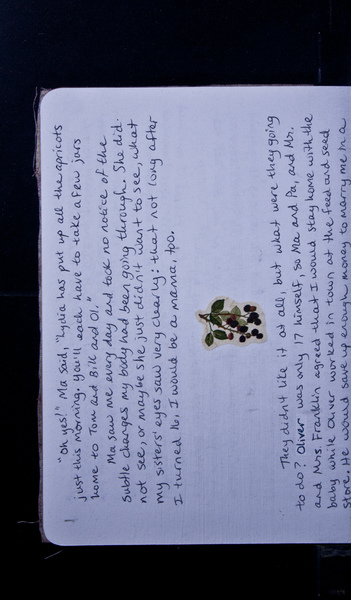 "Oh yes!" Ma said, "Lydia has put up all the apricots
just this morning. You'll each have to take a few jars
home to Tom and Bill and Ol."
Ma saw me every day and took no notice of the
subtle changes my body had been going through. She did
not see, or maybe she just didn't want to see, what
my sisters' eyes saw very clearly: that not long after
I turned 16, I would be a mama, too.
They didn't like it at all, but what were they going
to do? Oliver was only 17 himself, so Ma and Pa, and Mr.
and Mrs. Franklin agreed that I would stay home with the
baby while Oliver worked in town at the feed and seed
store. He would save up enough money to marry me in a